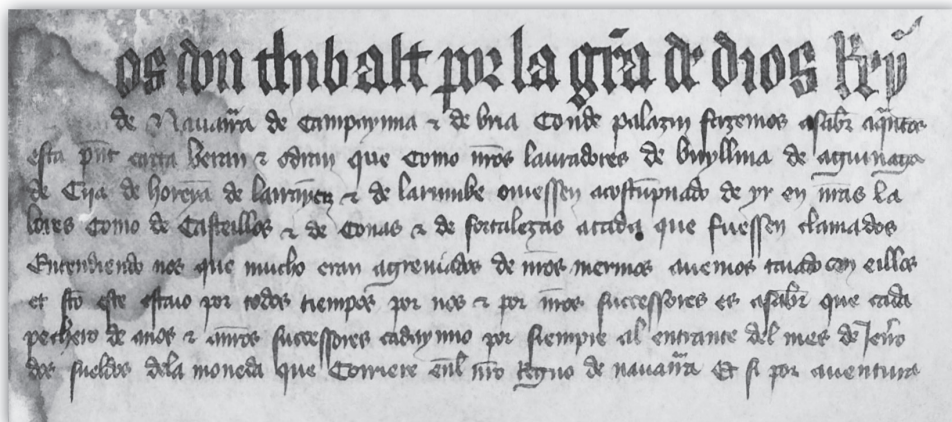 os don thibalt por la gra de dios Rey
de Nauarra de Campaynna & de bria Conde palazin fazemos asaber aquantos
esta pnt carta veran & odran que Como nros lauradores de de aguinaga
de Cia de de & de larumbe ouiessen acostupnado de yr en nras la
bores Como de Casteillos & de Conas & de fortalezas acada que fuessen clamados
Entendiendo nos que mucho eran agreuiados de nros mermos auemos tayado con eillos
et fto este estaio por todos tiempos por nos & por nros successores es asaber que cada
pechero de anos & anros successores cadaynno por siempre al entrante del mes de Jenro
dos sueldos dela moneda que Corriere enl nro Regno de nauarra Et si por auentura